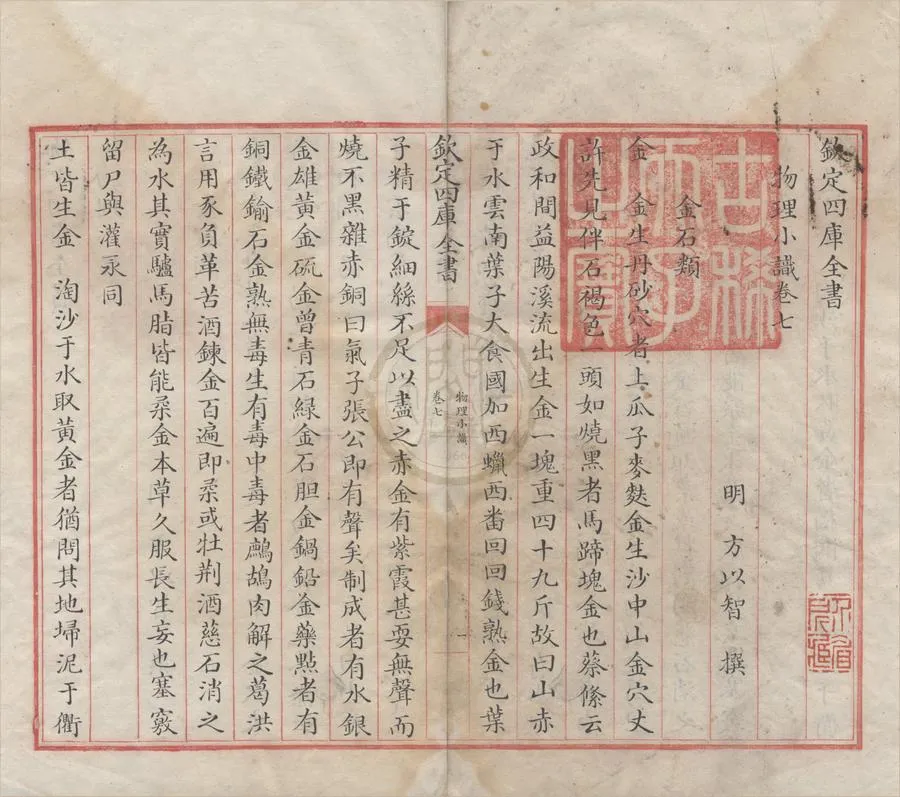 欽定四庫全書
物理小識卷七
明 方以智 撰
金石類
金 金生丹砂穴者上瓜子麥麩金生沙中山金穴丈
許先見伴石褐色一頭如燒黑者馬蹄塊金也蔡絛云
政和間益陽溪流出生金一塊重四十九斤故曰山赤
于水雲南葉子大食國加西蠟西畨回回錢熟金也葉
欽定四庫全書
物理小識
卷七
一
子精于錠細絲不足以盡之赤金有紫霞甚耎無聲而
燒不黑雜赤銅曰氣子張公即有聲矣制成者有水銀
金雄黃金硫金曾青石綠金石胆金鍋鉛金藥點者有
銅鐵鍮石金熟無毒生有毒中毒者鷓鴣肉解之葛洪
言用豕負革苦酒鍊金百遍即柔或牡荆酒慈石消之
為水其實驢馬脂皆能柔金本草久服長生妄也塞竅
留尸與灌汞同
土皆生金 淘沙于水取黃金者猶問其地埽泥于衢